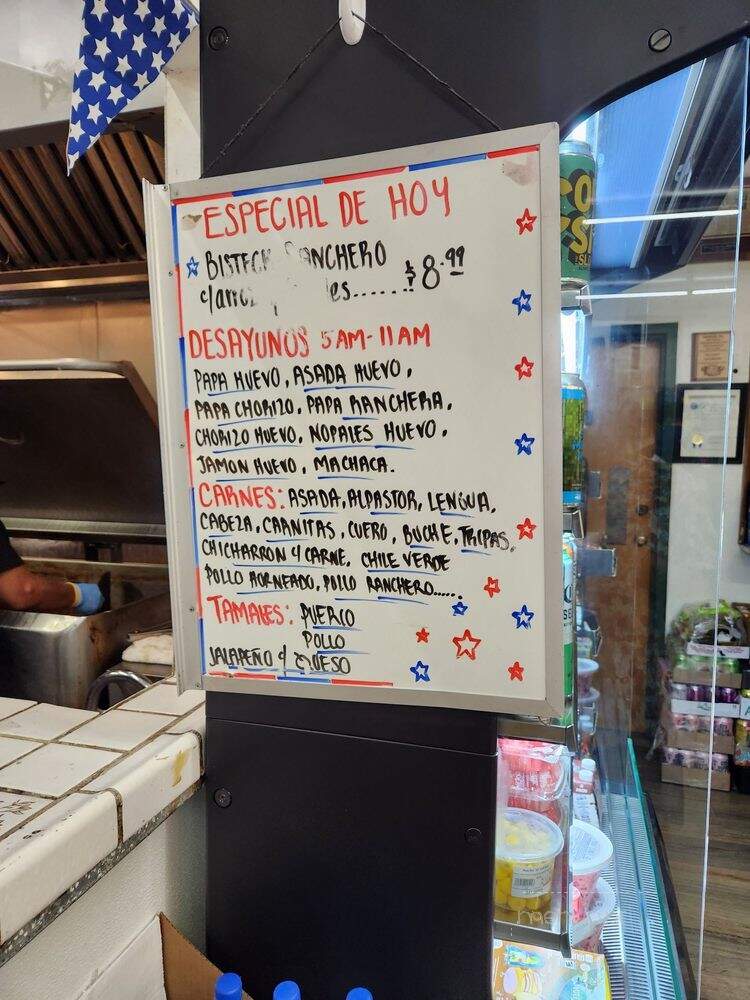 ESPECIAL DE HOY
BISTECK RANCHERO
c/arroz es...... $8.99
DESAYUNOS 5AM-11AM
PAPA HUEVO, ASADA HUEVO,
PAPA CHORIZO, PAPA RANCHERA,
CHORIZO HUEVO, NOPALES HUEVO,
JAMON HUEVO, MACHACA.
CARNES: ASADA, ALPASTOR, LENGUA,
CABEZA, CARNITAS, CUERO, BUCHE, TRIPAS,
CHICHARRON Y CARNE, CHILE VERDE
POLLO HORNEADO, POLLO RANCHERO.....
TAMALES: PUERCO
POLLO
JALAPEÑO Y QUESO